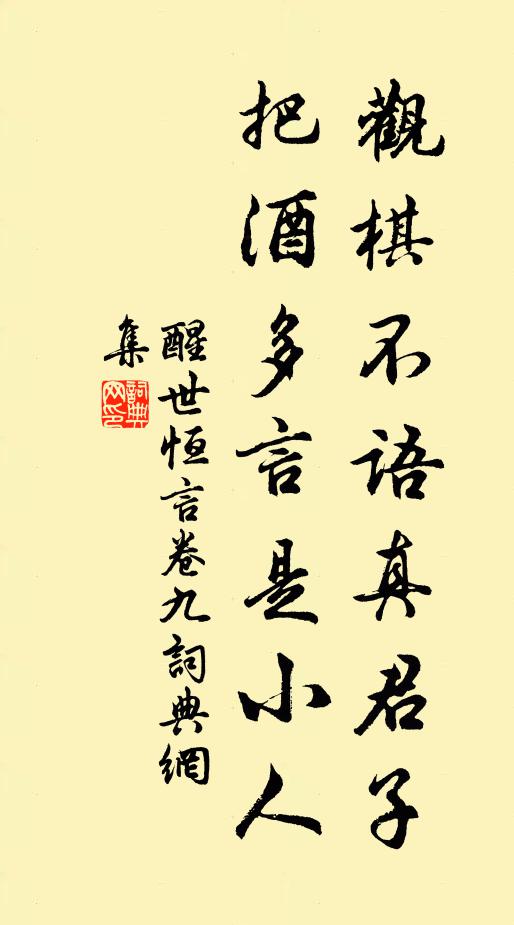 觀棋不語真君子
把酒多言是小人
醒世恒言卷九詞典網
集
詞典
网印